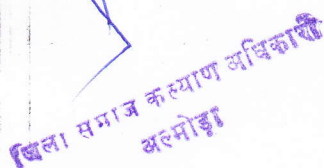 जिला समाज कल्याण अधिकारी
अल्मोड़ा